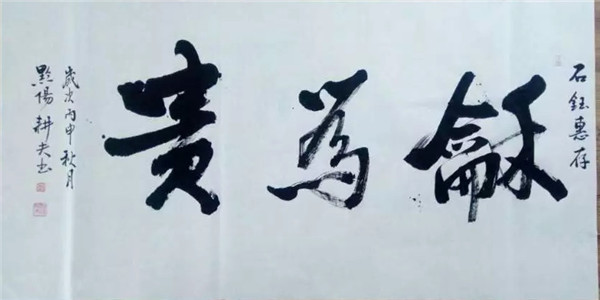 石鈺惠存
龢為貴
歲次丙申秋月
黔陽耕夫书